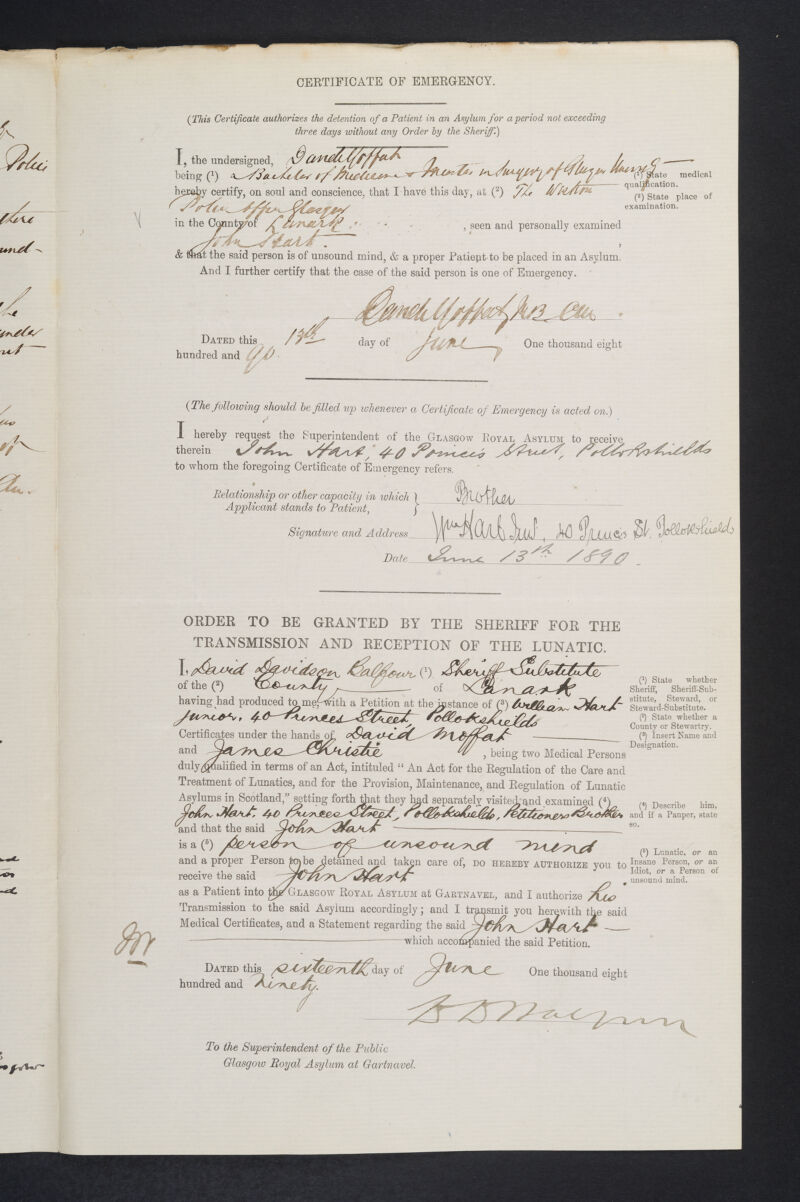 Police
there
CERTIFICATE OF EMERGENCY.
(This Certificate authorizes the detention of a Patient in an Asylum for a period not exceeding
three days without any Order by the Sheriff.)
I, the undersigned, David Moffat
being (1) a Bachelor of Medicine & Master in Surgery of Glasgow
(1) State medical
qualification.
hereby certify, on soul and conscience, that I have this day, at (2) The
(2) State place of
examination.
Police Office Glasgow
in the County of Lanark , seen and personally examined
John Hart. ,
& that the said person is of unsound mind, & a proper Patient to be placed in an Asylum.
And I further certify that the case of the said person is one of Emergency.
David Moffat, M.B. C.M.
DATED this 13th day of June, One thousand eight
hundred and 90.
(The following should be filled up whenever a Certificate of Emergency is acted on.)
I hereby request the Superintendent of the GLASGOW ROYAL ASYLUM to receive
therein John Hart, 40 Princes Street, Pollokshields
to whom the foregoing Certificate of Emergency refers.
Relationship or other capacity in which
Applicant stands to Patient, } Brother
Signature and Address Wm Hart Junr, 40 Princes St. Pollokshields
Date June 13th 1890.
ORDER TO BE GRANTED BY THE SHERIFF FOR THE
TRANSMISSION AND RECEPTION OF THE LUNATIC.
I, David Davidson Balfour (1) Sheriff Substitute
of the (2) County of Lanark
having had produced to me, with a Petition at the instance of (3) William Hart
junior, 40 Princes Street, Pollokshields
Certificates under the hands of David Moffat
and James Christie , being two Medical Persons
duly qualified in terms of an Act, intituled "An Act for the Regulation of the Care and
Treatment of Lunatics, and for the Provision, Maintenance, and Regulation of Lunatic
Asylums in Scotland," setting forth that they had separately visited and examined (4)
John Hart. 40 Princes Street, Pollokshields, Petitioners Brother
and that the said John Hart
is a (5) person of unsound mind
and a proper Person to be detained and taken care of, DO HEREBY AUTHORIZE you to
receive the said John Hart
as a Patient into the GLASGOW ROYAL ASYLUM AT GARTNAVEL, and I authorize his
Transmission to the said Asylum accordingly; and I transmit you herewith the said
Medical Certificates, and a Statement regarding the said John Hart
which accompanied the said Petition.
(1) State whether
Sheriff, Sheriff-Sub-
stitute, Steward, or
Steward-Substitute.
(2) State whether a
County or Stewartry.
(3) Insert Name and
Designation.
(4) Describe him,
and if a Pauper, state
so.
(5) Lunatic, or an
Insane Person, or an
Idiot, or a Person of
unsound mind.
DATED this sixteenth day of June One thousand eight
hundred and Ninety.
D D Balfour
To the Superintendent of the Public
Glasgow Royal Asylum at Gartnavel.